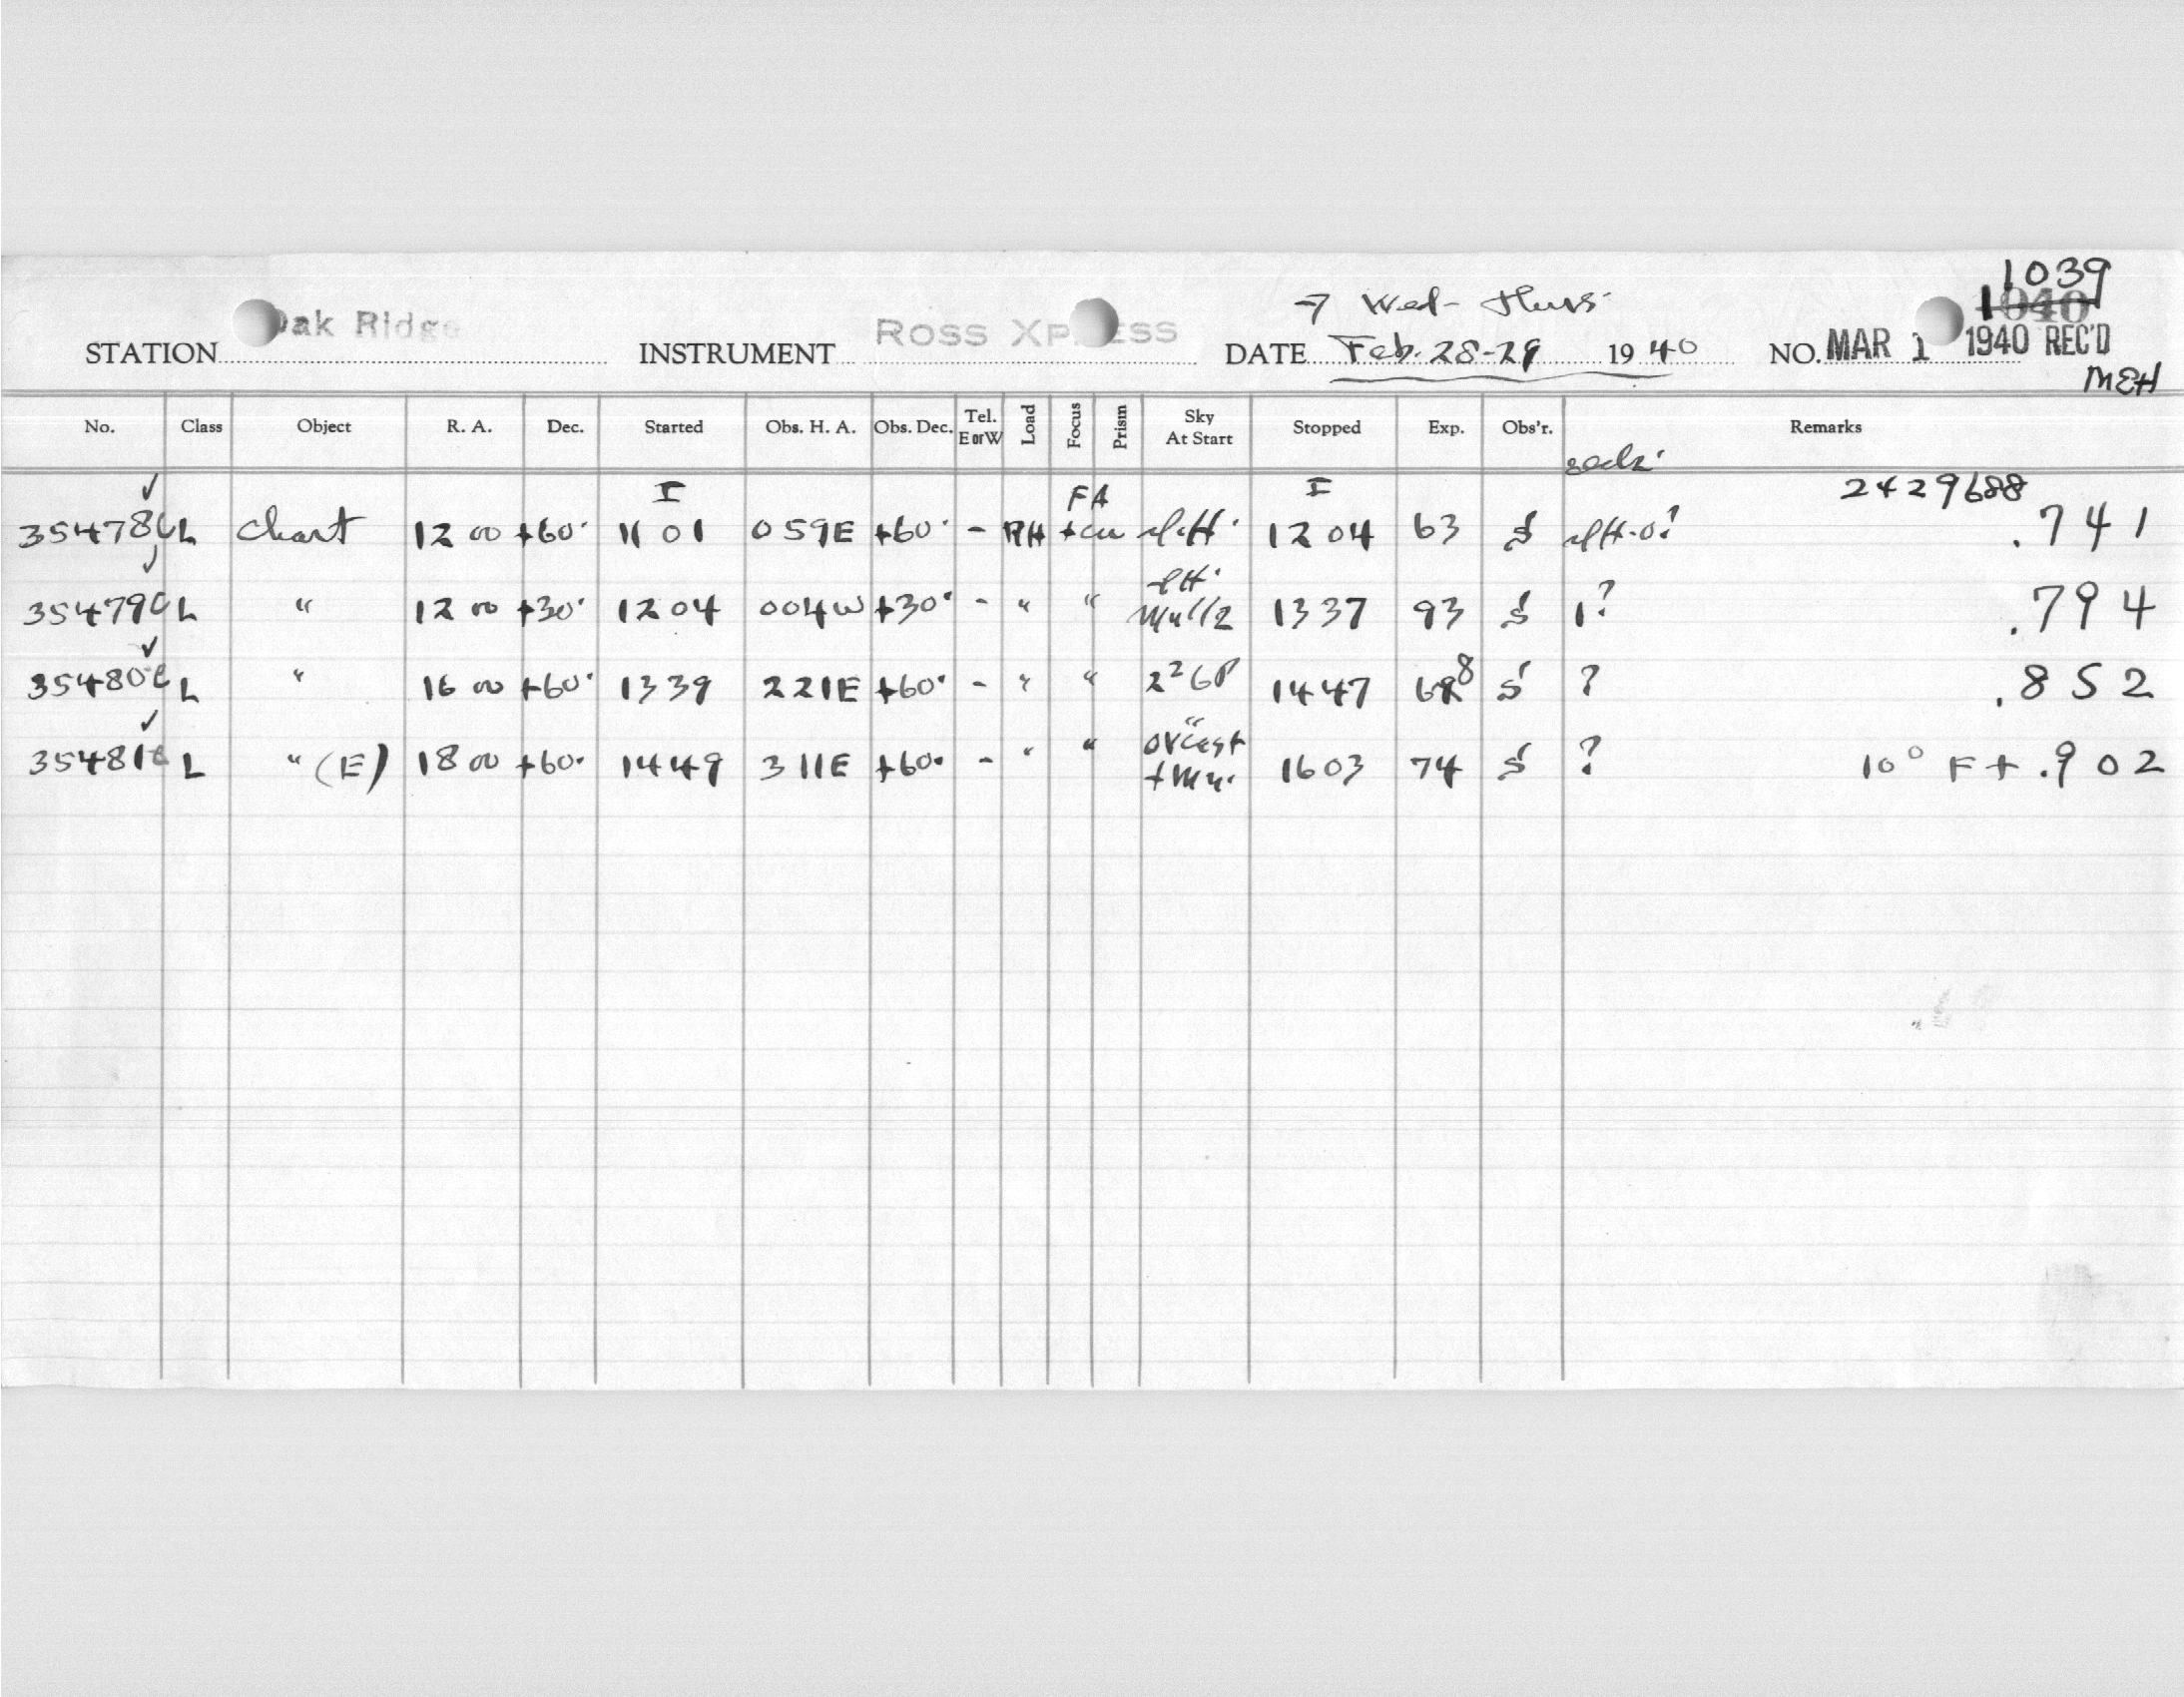 1039
→ Wed - Thurs.
1040
STATION Oak Ridge INSTRUMENT ROSS XPRESS DATE Feb. 28-29 1940 NO. MAR 1 1940 REC'D
MEH
No. Class Object R. A. Dec. Started Obs. H. A. Obs. Dec. Tel. E or W Load Focus Prism Sky At Start Stopped Exp. Obs'r. Remarks
I FA I 2429688
35478 L Chart 12 00 +60° 11 01 059E +60° - RH 12 04 63 S .741
35479 L " 12 00 +30° 12 04 004W +30° - " " 13 37 93 S 1? .794
35480 L " 16 00 +60° 13 39 221E +60° - " " 14 47 68 S ? .852
35481 L " (E) 18 00 +60° 14 49 311E +60° - " " ovcast 16 03 74 S ? 10° F+ .902